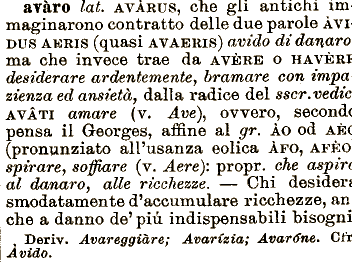 avàro lat. AVÀRUS, che gli antichi im-
maginarono contratto delle due parole ÀVI-
DUS AERIS (quasi AVAERIS) avido di danaro
ma che invece trae da AVÈRE o HAVÈRE
desiderare ardentemente, bramare con impa-
zienza ed ansietà, dalla radice del sscr. vedic
AVÂTI amare (v. Ave), ovvero, secondo
pensa il Georges, affine al gr. ÀO od AEÒ
(pronunziato all'usanza eolica ÀFO, AFÈO
spirare, soffiare (v. Aere): propr. che aspira
al danaro, alle ricchezze. — Chi desidera
smodatamente d'accumulare ricchezze, an
che a danno de' piú indispensabili bisogni
Deriv. Avareggiàre; Avarízia; Avaróne. Cfr
Àvido.